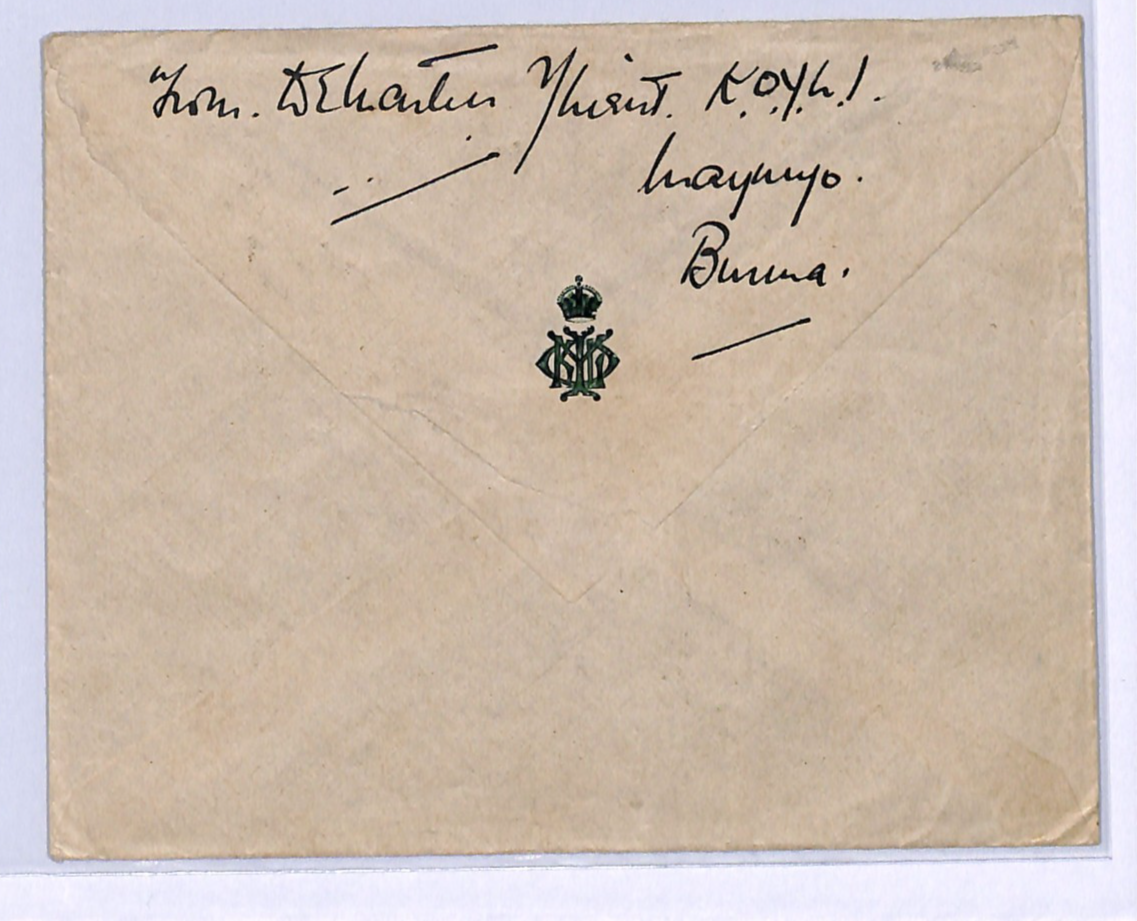 From. 2/Lieut. K.O.Y.L.I.
Maymyo.
Burma.